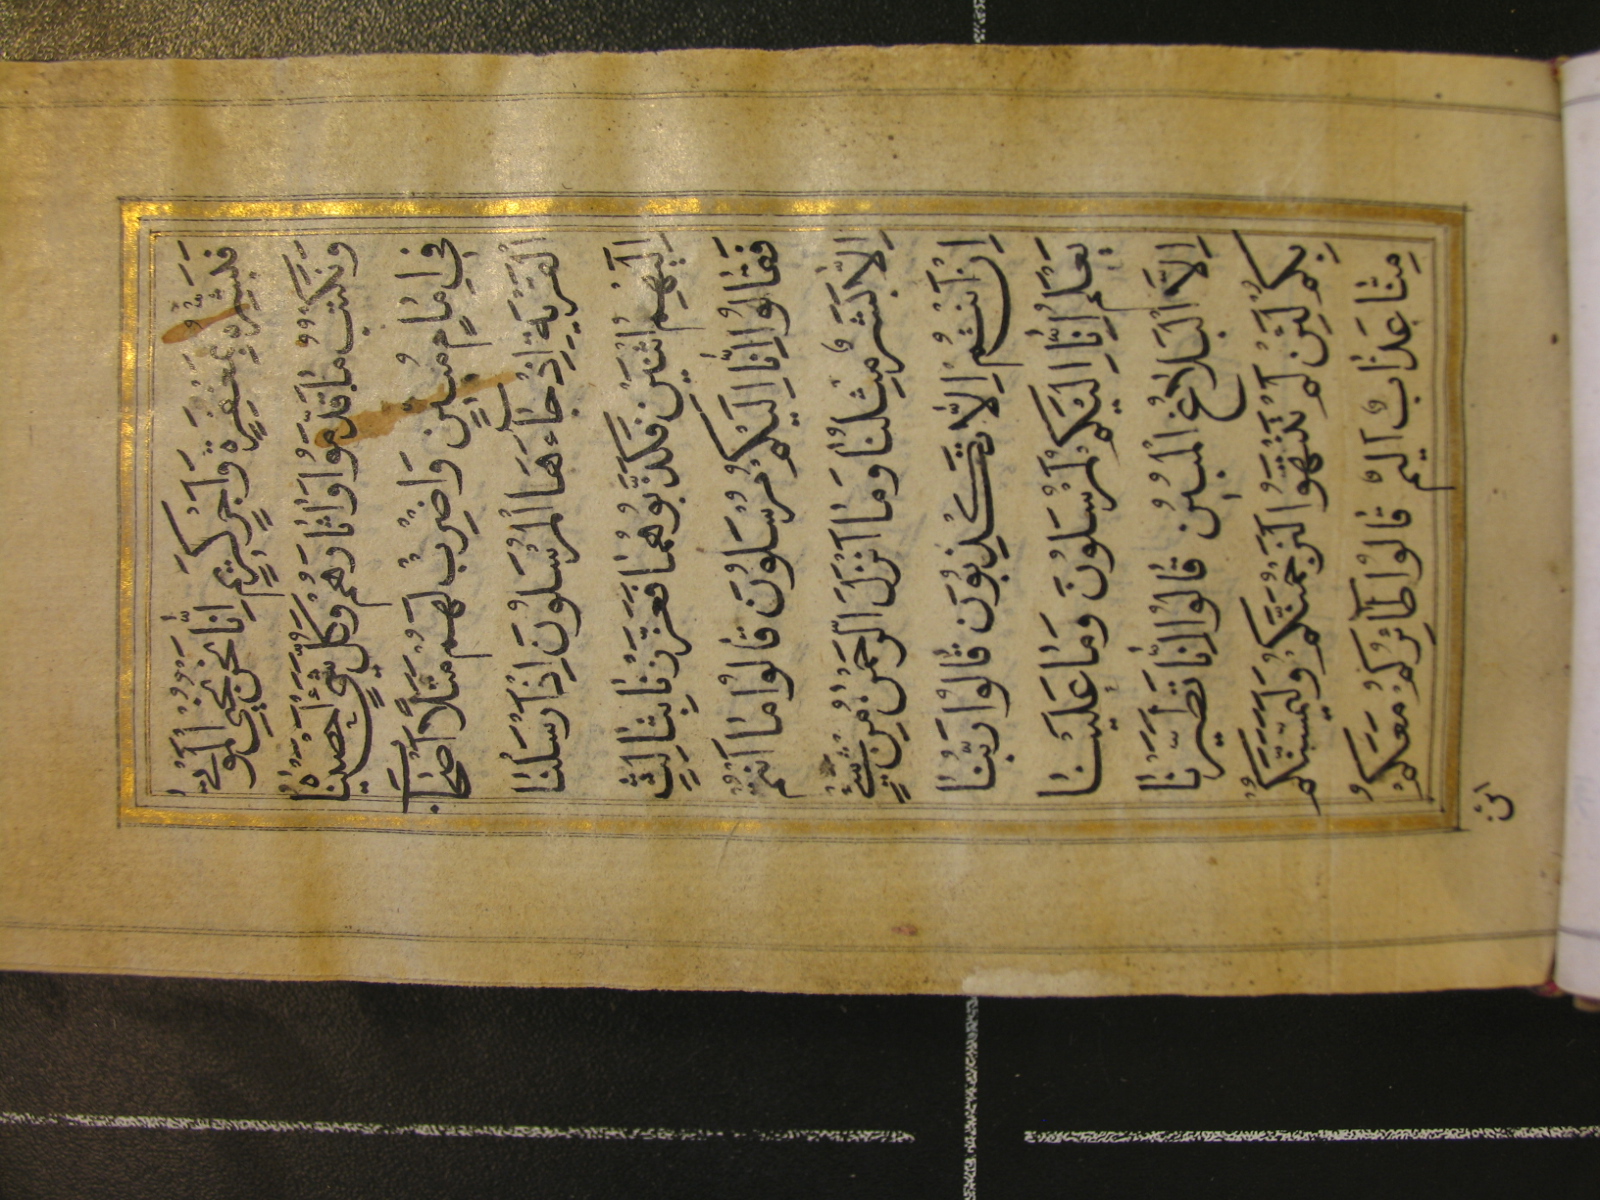 فَبَشِّرْهُ بِمَغْفِرَةٍ وَاَجْرٍ كَرِيمٍ اِنَّا نَحْنُ نُحْيِ الْمَوْتٰى
وَنَكْتُبُ مَا قَدَّمُوا وَاٰثَارَهُمْ وَكُلَّ شَيْءٍ اَحْصَيْنَاهُ
فِي اِمَامٍ مُبِينٍ وَاضْرِبْ لَهُمْ مَثَلًا اَصْحَابَ
الْقَرْيَةِ اِذْ جَاءَهَا الْمُرْسَلُونَ اِذْ اَرْسَلْنَا
اِلَيْهِمُ اثْنَيْنِ فَكَذَّبُوهُمَا فَعَزَّزْنَا بِثَالِثٍ
فَقَالُوا اِنَّا اِلَيْكُمْ مُرْسَلُونَ قَالُوا مَا اَنْتُمْ
اِلَّا بَشَرٌ مِثْلُنَا وَمَا اَنْزَلَ الرَّحْمٰنُ مِنْ شَيْءٍ
اِنْ اَنْتُمْ اِلَّا تَكْذِبُونَ قَالُوا رَبُّنَا
يَعْلَمُ اِنَّا اِلَيْكُمْ لَمُرْسَلُونَ وَمَا عَلَيْنَا
اِلَّا الْبَلَاغُ الْمُبِينُ قَالُوا اِنَّا تَطَيَّرْنَا
بِكُمْ لَئِنْ لَمْ تَنْتَهُوا لَنَرْجُمَنَّكُمْ وَلَيَمَسَّنَّكُمْ
مِنَّا عَذَابٌ اَلِيمٌ قَالُوا طَائِرُكُمْ مَعَكُمْ
اَئِنْ